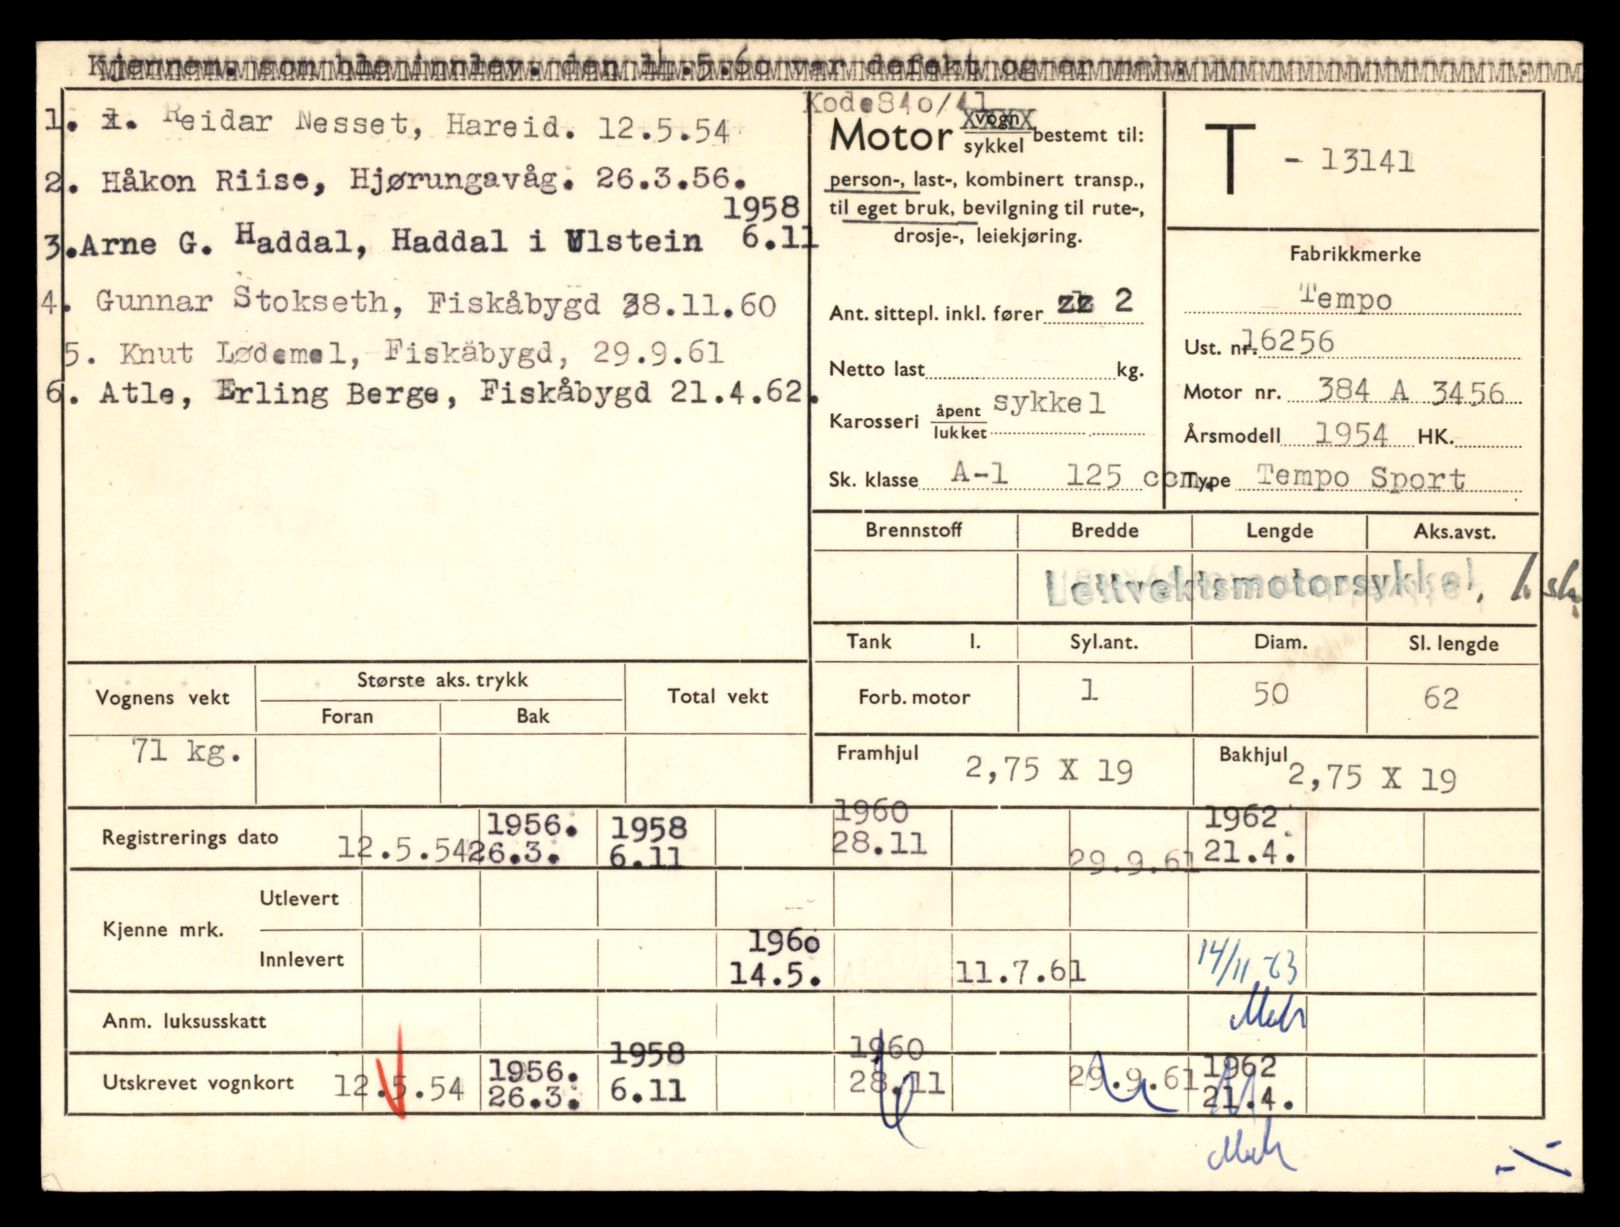 Kjennem. som ble innlev. den 14.5.60 var defekt og er mak.
1. Reidar Nesset, Hareid. 12.5.54
2. Håkon Riise, Hjørungavåg. 26.3.56.
1958
3. Arne G. Haddal, Haddal i Ulstein 6.11
4. Gunnar Stokseth, Fiskåbygd 28.11.60
5. Knut Lødemel, Fiskåbygd, 29.9.61
6. Atle, Erling Berge, Fiskåbygd 21.4.62.
Kode 840/41
Motor vogn sykkel bestemt til:
person-, last-, kombinert transp.,
til eget bruk, bevilgning til rute-,
drosje-, leiekjøring.
Ant. sittepl. inkl. fører 2
Netto last kg.
Karosseri åpent lukket sykkel
Sk. klasse A-1 125 ccm.
T - 13141
Fabrikkmerke
Tempo
Ust. nr. 16256
Motor nr. 384 A 3456
Årsmodell 1954 HK.
Type Tempo Sport
Brennstoff Bredde Lengde Aks.avst.
Lettvektsmotorsykkel,
Tank l. Syl.ant. Diam. Sl. lengde
Forb. motor 1 50 62
Framhjul 2,75 X 19 Bakhjul 2,75 X 19
Vognens vekt Største aks. trykk Total vekt
Foran Bak
71 kg.
1956. 1958 1960 1962
Registrerings dato 12.5.54 26.3. 6.11 28.11 29.9.61 21.4.
Kjenne mrk.
Utlevert
1960
Innlevert 14.5. 11.7.61 14/11-63
Anm. luksusskatt
1956. 1958 1960 1962
Utskrevet vognkort 12.5.54 26.3. 6.11 28.11 29.9.61 21.4.